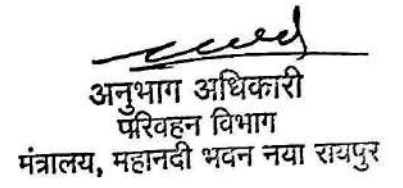 अनुभाग अधिकारी
परिवहन विभाग
मंत्रालय, महानदी भवन नया रायपुर